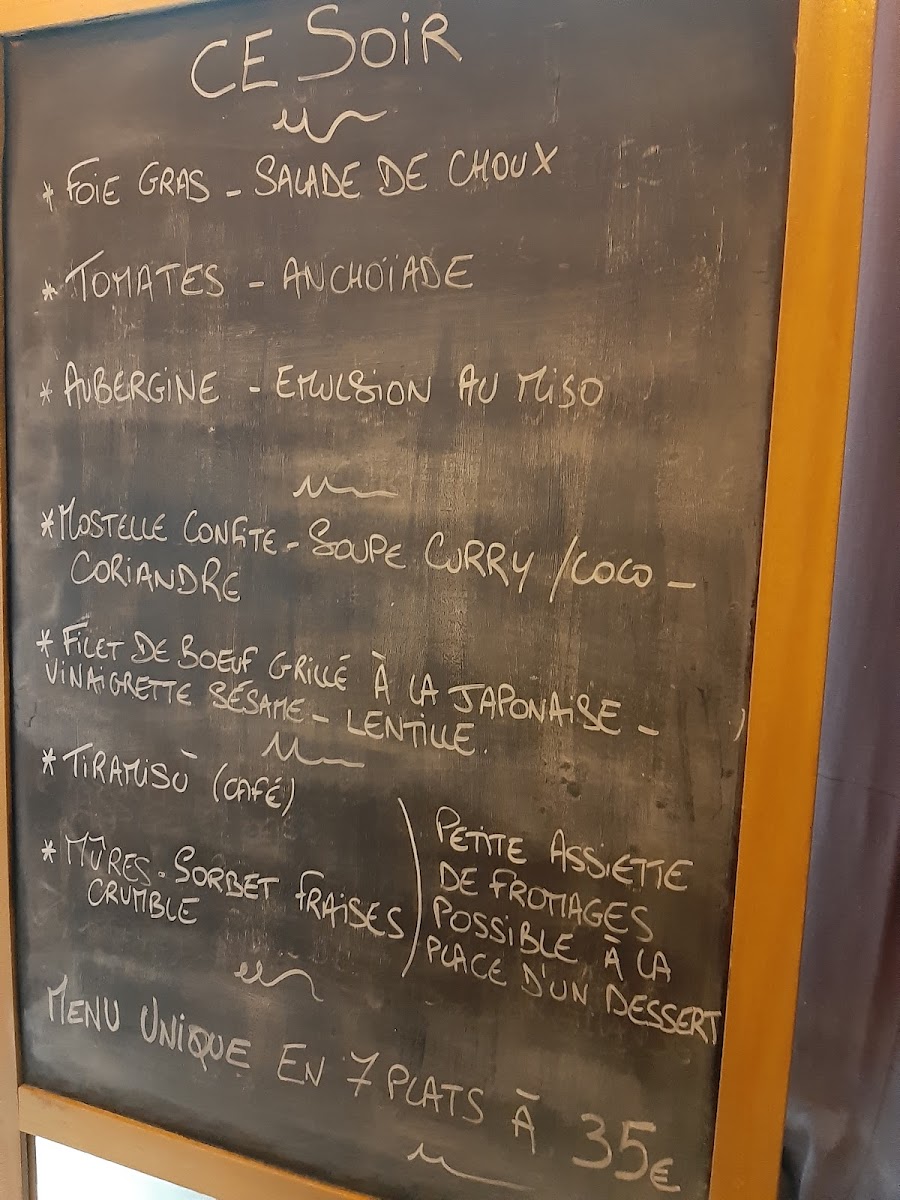 CE SOIR
* FOIE GRAS - SALADE DE CHOUX
* TOMATES - ANCHOÏADE
* AUBERGINE - EMULSION AU MISO
* MOSTELLE CONFITE - SOUPE CURRY / COCO -
CORIANDRE
* FILET DE BOEUF GRILLÉ À LA JAPONAISE -
VINAIGRETTE SÉSAME - LENTILLE.
* TIRAMISÙ (CAFÉ)
* MÛRES - SORBET FRAISES
CRUMBLE
PETITE ASSIETTE
DE FROMAGES
POSSIBLE À LA
PLACE D'UN DESSERT
MENU UNIQUE EN 7 PLATS À 35€